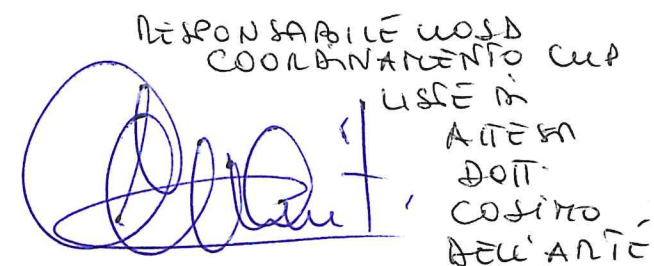 RESPONSABILE UOSD
COORDINAMENTO CUP
LISTE DI
ATTESA
DOTT.
COSIMO
DELL'ARTE